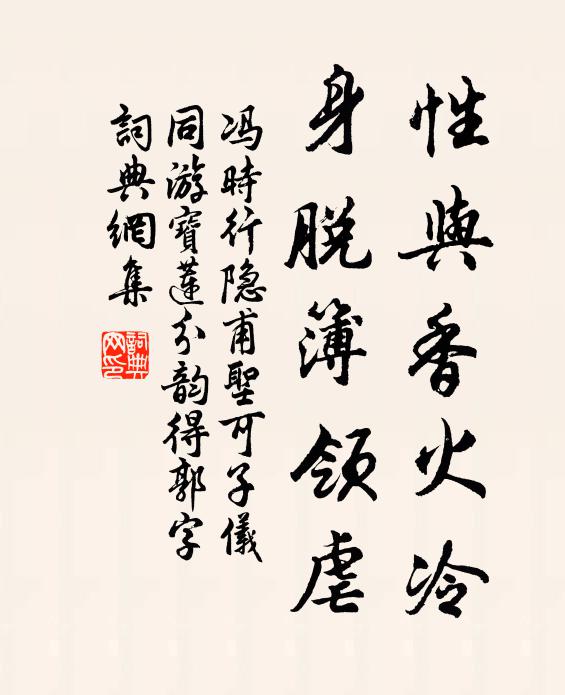 性與香火冷
身脫簿領虐
冯時行隐甫聖可子儀
同游寶蓮分韵得郭字
詞典網集
詞典
网印